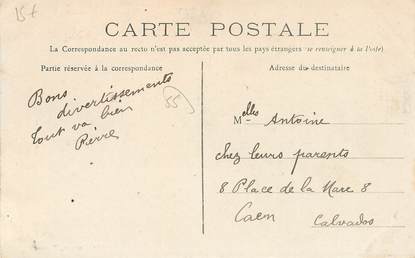 15€
CARTE POSTALE
La Correspondance au recto n'est pas acceptée par tous les pays étrangers (se renseigner à la Poste)
Partie réservée à la correspondance
Adresse du destinataire
Bons
divertissements
Tout va bien
Pierre
55
Melles Antoine
chez leurs parents
8 Place de la Mare 8
Caen Calvados